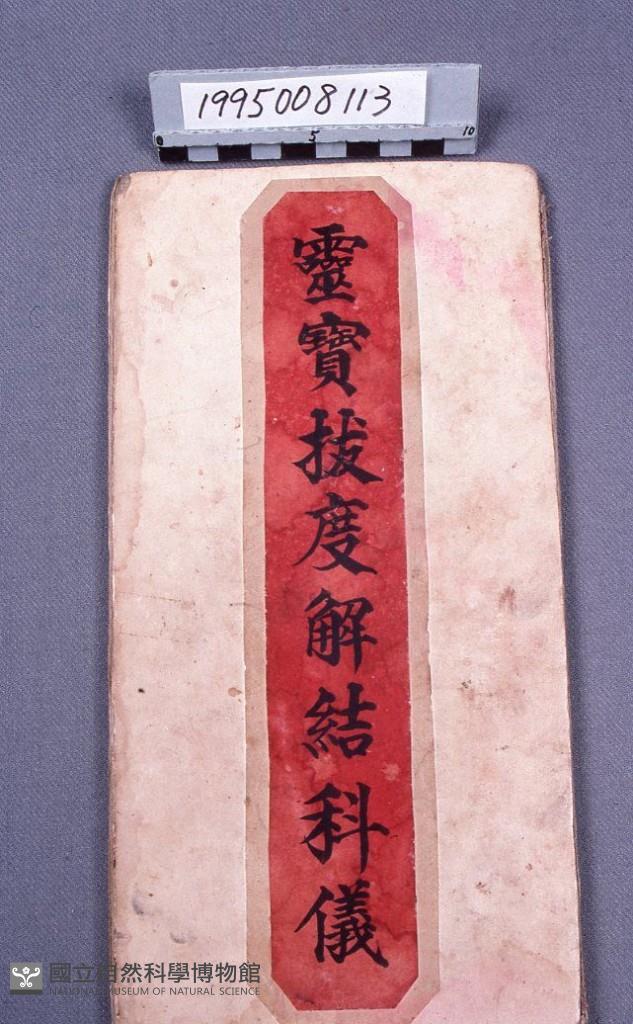 1995008113
0 5 10
靈寶拔度解結科儀
國立自然科學博物館
NATIONAL MUSEUM OF NATURAL SCIENCE